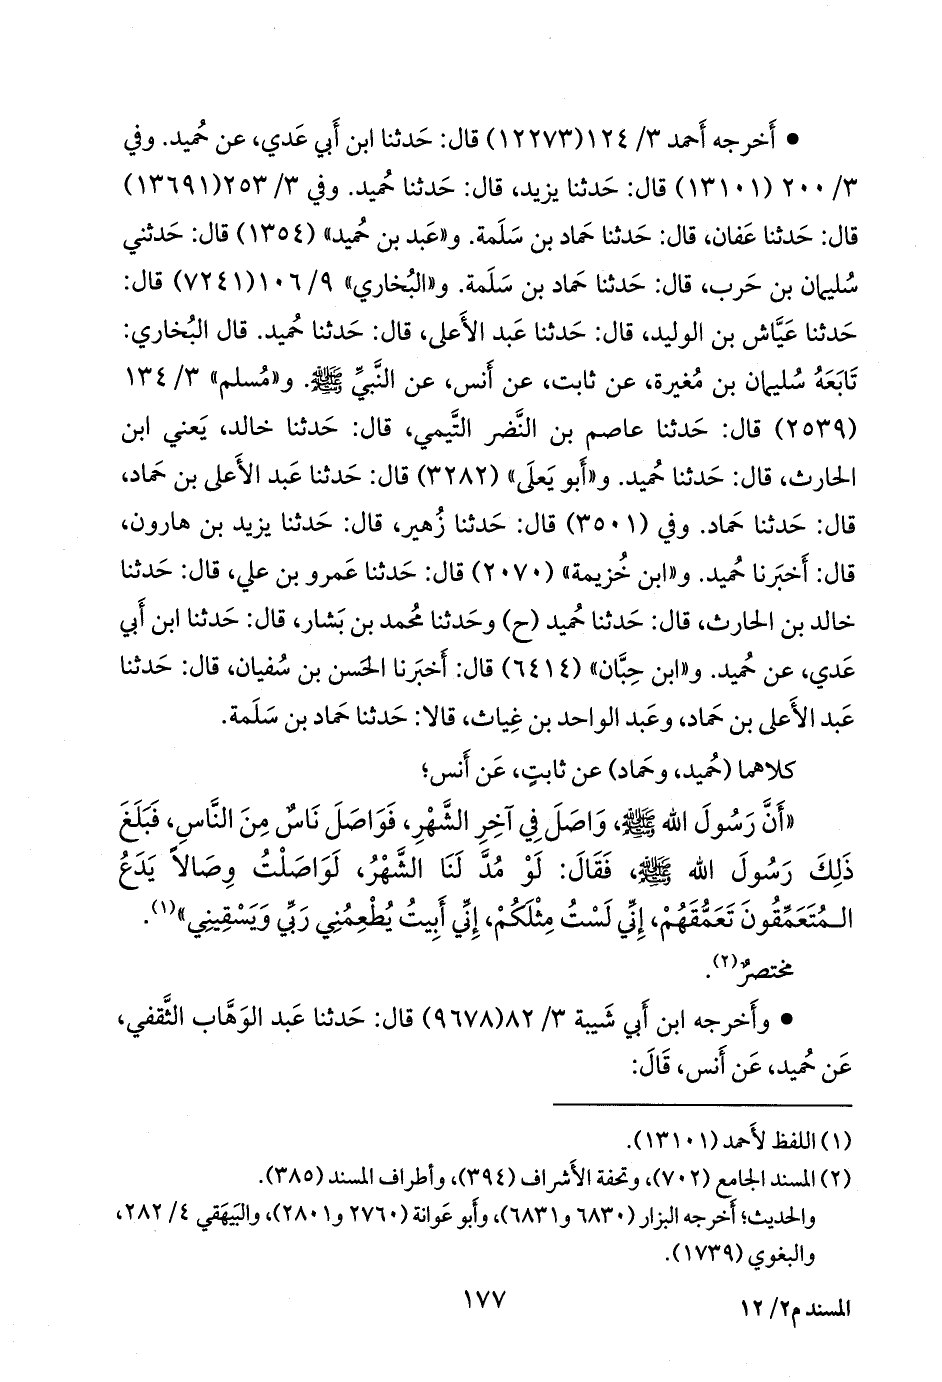 • أَخرجه أَحمد ٣/ ١٢٤(١٢٢٧٣) قال: حَدثنا ابن أَبي عَدي، عن حُميد. وفي
٣/ ٢٠٠ (١٣١٠١) قال: حَدثنا يزيد، قال: حَدثنا حُميد. وفي ٣/ ٢٥٣(١٣٦٩١)
قال: حَدثنا عَفان، قال: حَدثنا حَماد بن سَلَمة. و«عَبد بن حُميد» (١٣٥٤) قال: حَدثني
سُليمان بن حَرب، قال: حَدثنا حَماد بن سَلَمة. و«البُخاري» ٩/ ١٠٦(٧٢٤١) قال:
حَدثنا عَيَّاش بن الوليد، قال: حَدثنا عَبد الأَعلى، قال: حَدثنا حُميد. قال البُخاري:
تَابَعَهُ سُليمان بن مُغيرة، عن ثابت، عن أَنس، عن النَّبيِّ ﷺ. و«مُسلم» ٣/ ١٣٤
(٢٥٣٩) قال: حَدثنا عاصم بن النَّضر التَّيمي، قال: حَدثنا خالد، يَعني ابن
الحارث، قال: حَدثنا حُميد. و«أَبو يَعلَى» (٣٢٨٢) قال: حَدثنا عَبد الأَعلى بن حَماد،
قال: حَدثنا حَماد. وفي (٣٥٠١) قال: حَدثنا زُهير، قال: حَدثنا يزيد بن هارون،
قال: أَخبَرنا حُميد. و«ابن خُزيمة» (٢٠٧٠) قال: حَدثنا عَمرو بن علي، قال: حَدثنا
خالد بن الحارث، قال: حَدثنا حُميد (ح) وحَدثنا مُحمد بن بَشار، قال: حَدثنا ابن أَبي
عَدي، عن حُميد. و«ابن حِبَّان» (٦٤١٤) قال: أَخبَرنا الحَسن بن سُفيان، قال: حَدثنا
عَبد الأَعلى بن حَماد، وعَبد الواحد بن غِياث، قالا: حَدثنا حَماد بن سَلَمة.
كلاهما (حُميد، وحَماد) عن ثابتٍ، عَن أَنس؛
«أَنَّ رَسُولَ الله ﷺ، وَاصَلَ فِي آخِرِ الشَّهْرِ، فَوَاصَلَ نَاسٌ مِنَ النَّاسِ، فَبَلَغَ
ذَلِكَ رَسُولَ الله ﷺ، فَقَالَ: لَوْ مُدَّ لَنَا الشَّهْرُ، لَوَاصَلْتُ وِصَالاً يَدَعُ
الـمُتَعَمِّقُونَ تَعَمُّقَهُمْ، إِنِّي لَسْتُ مِثْلَكُمْ، إِنِّي أَبِيتُ يُطْعِمُنِي رَبِّي وَيَسْقِينِي»(١).
مختصرٌ(٢).
• وأَخرجه ابن أَبي شَيبة ٣/ ٨٢(٩٦٧٨) قال: حَدثنا عَبد الوَهَّاب الثَّقفي،
عَن حُميد، عَن أَنس، قَالَ:
(١) اللفظ لأَحمد (١٣١٠١).
(٢) المسند الجامع (٧٠٢)، وتحفة الأَشراف (٣٩٤)، وأَطراف المسند (٣٨٥).
والحديث؛ أَخرجه البزار (٦٨٣٠ و٦٨٣١)، وأَبو عَوانة (٢٧٦٠ و٢٨٠١)، والبَيهَقي ٤/ ٢٨٢،
والبغوي (١٧٣٩).
المسند م٢/ ١٢
١٧٧